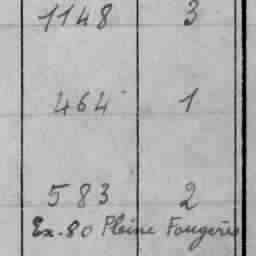 1148 3
464 1
583 2
Ex-80 Pleine Fougères